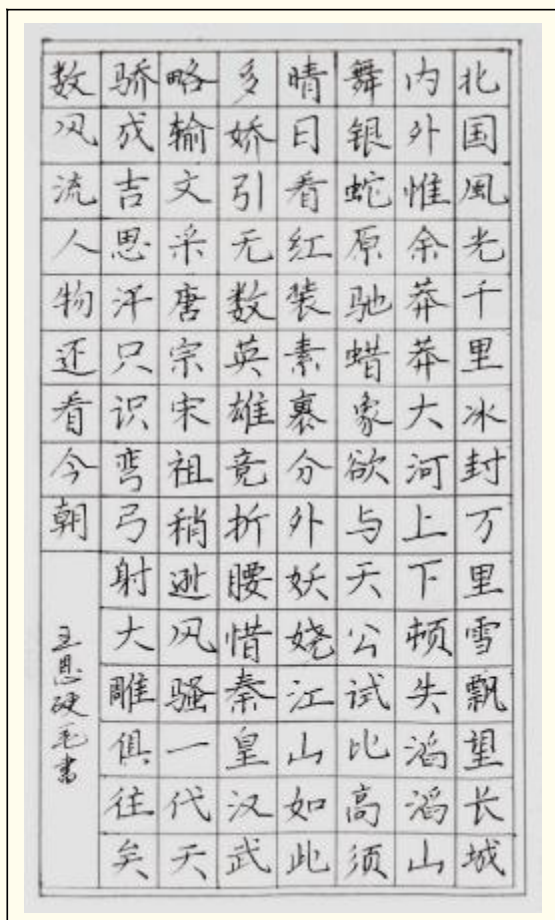 北国風光千里冰封万里雪飘望长城
内外惟余莽莽大河上下顿失滔滔山
舞银蛇原驰蜡象欲与天公试比高须
晴日看红装素裹分外妖娆江山如此
多娇引无数英雄竟折腰惜秦皇汉武
略输文采唐宗宋祖稍逊风骚一代天
骄成吉思汗只识弯弓射大雕俱往矣
数风流人物还看今朝
王恩硬毛書